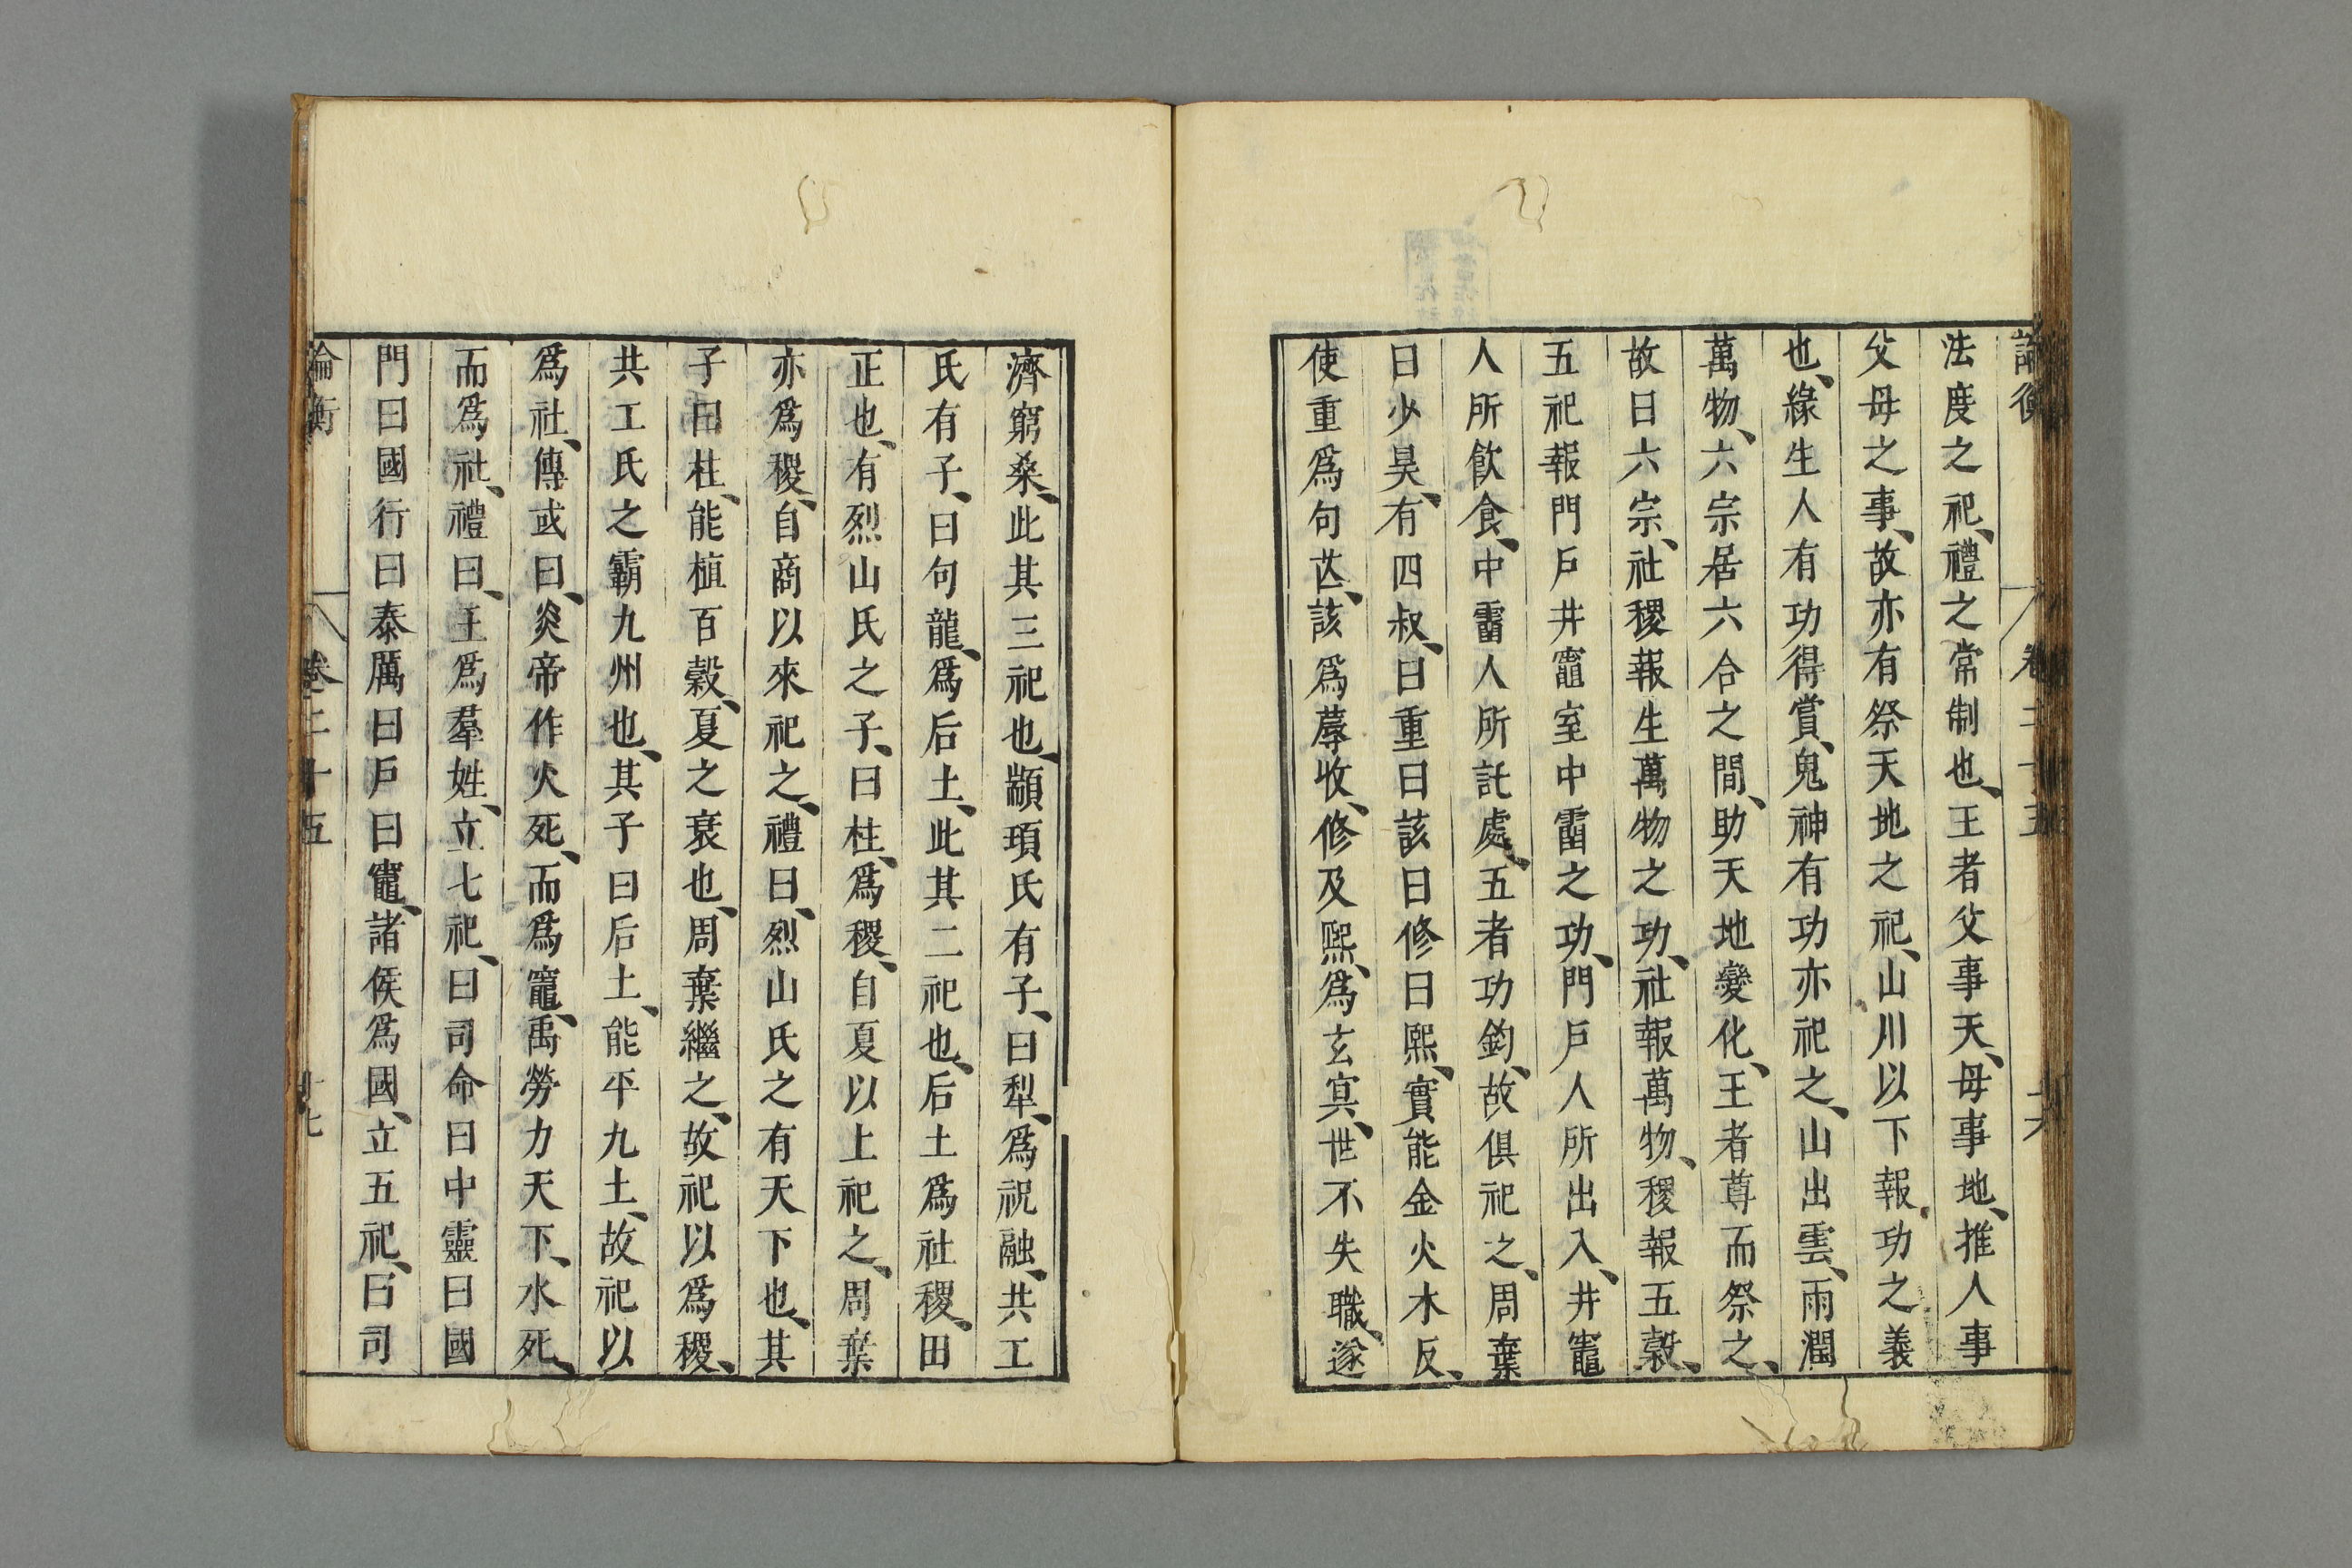 論衡 卷二十五 十六
法度之祀、禮之常制也、王者父事天、母事地、推人事
父母之事、故亦有祭天地之祀、山川以下報功之義
也、緣生人有功得賞、鬼神有功亦祀之、山出雲、雨潤
萬物、六宗居六合之間、助天地變化、王者尊而祭之、
故曰六宗、社稷報生萬物之功、社報萬物、稷報五穀、
五祀報門戶井竈室中霤之功、門戶人所出入、井竈
人所飲食、中霤人所託處、五者功鈞、故俱祀之、周棄
曰少昊、有四叔、曰重曰該曰修曰熙、實能金火木反、
使重爲句芒、該爲蓐收、修及熙、爲玄冥、世不失職、遂
濟窮桑、此其三祀也、顓頊氏有子、曰犁、爲祝融、共工
氏有子、曰句龍、爲后土、此其二祀也、后土爲社稷、田
正也、有烈山氏之子、曰柱、爲稷、自夏以上祀之、周棄
亦爲稷、自商以來祀之、禮曰、烈山氏之有天下也、其
子曰柱、能植百穀、夏之衰也、周棄繼之、故祀以爲稷、
共工氏之霸九州也、其子曰后土、能平九土、故祀以
爲社、傳或曰、炎帝作火死、而爲竈、禹勞力天下、水死、
而爲社、禮曰、王爲羣姓、立七祀、曰司命曰中靈曰國
門曰國行曰泰厲曰戶曰竈、諸侯爲國、立五祀、曰司
論衡 卷二十五 十七